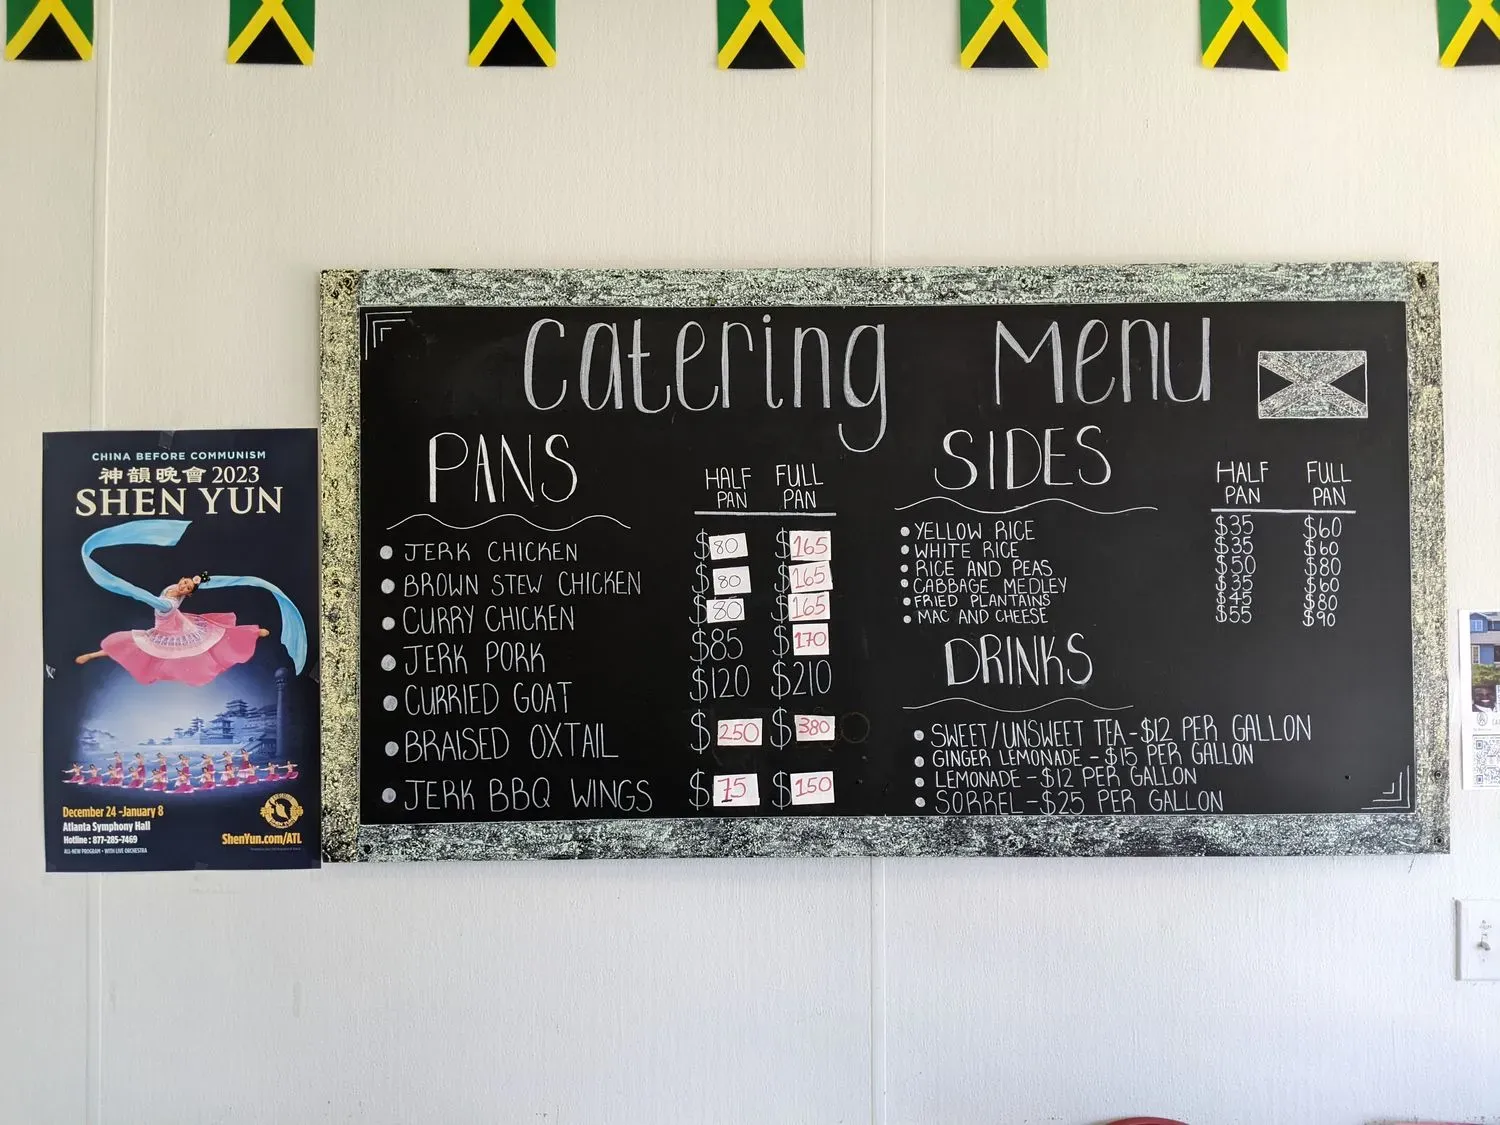 CHINA BEFORE COMMUNISM
神韻晚會 2023
SHEN YUN
December 24 -January 8
Atlanta Symphony Hall
Hotline : 877-285-7469
ALL-NEW PROGRAM • WITH LIVE ORCHESTRA
ShenYun.com/ATL
Catering Menu
PANS
HALF PAN
FULL PAN
JERK CHICKEN $80 $165
BROWN STEW CHICKEN $80 $165
CURRY CHICKEN $80 $165
JERK PORK $85 $170
CURRIED GOAT $120 $210
BRAISED OXTAIL $250 $380
JERK BBQ WINGS $75 $150
SIDES
HALF PAN
FULL PAN
YELLOW RICE $35 $60
WHITE RICE $35 $60
RICE AND PEAS $50 $80
CABBAGE MEDLEY $35 $60
FRIED PLANTAINS $45 $80
MAC AND CHEESE $55 $90
DRINKS
SWEET/UNSWEET TEA-$12 PER GALLON
GINGER LEMONADE -$15 PER GALLON
LEMONADE -$12 PER GALLON
SORREL-$25 PER GALLON